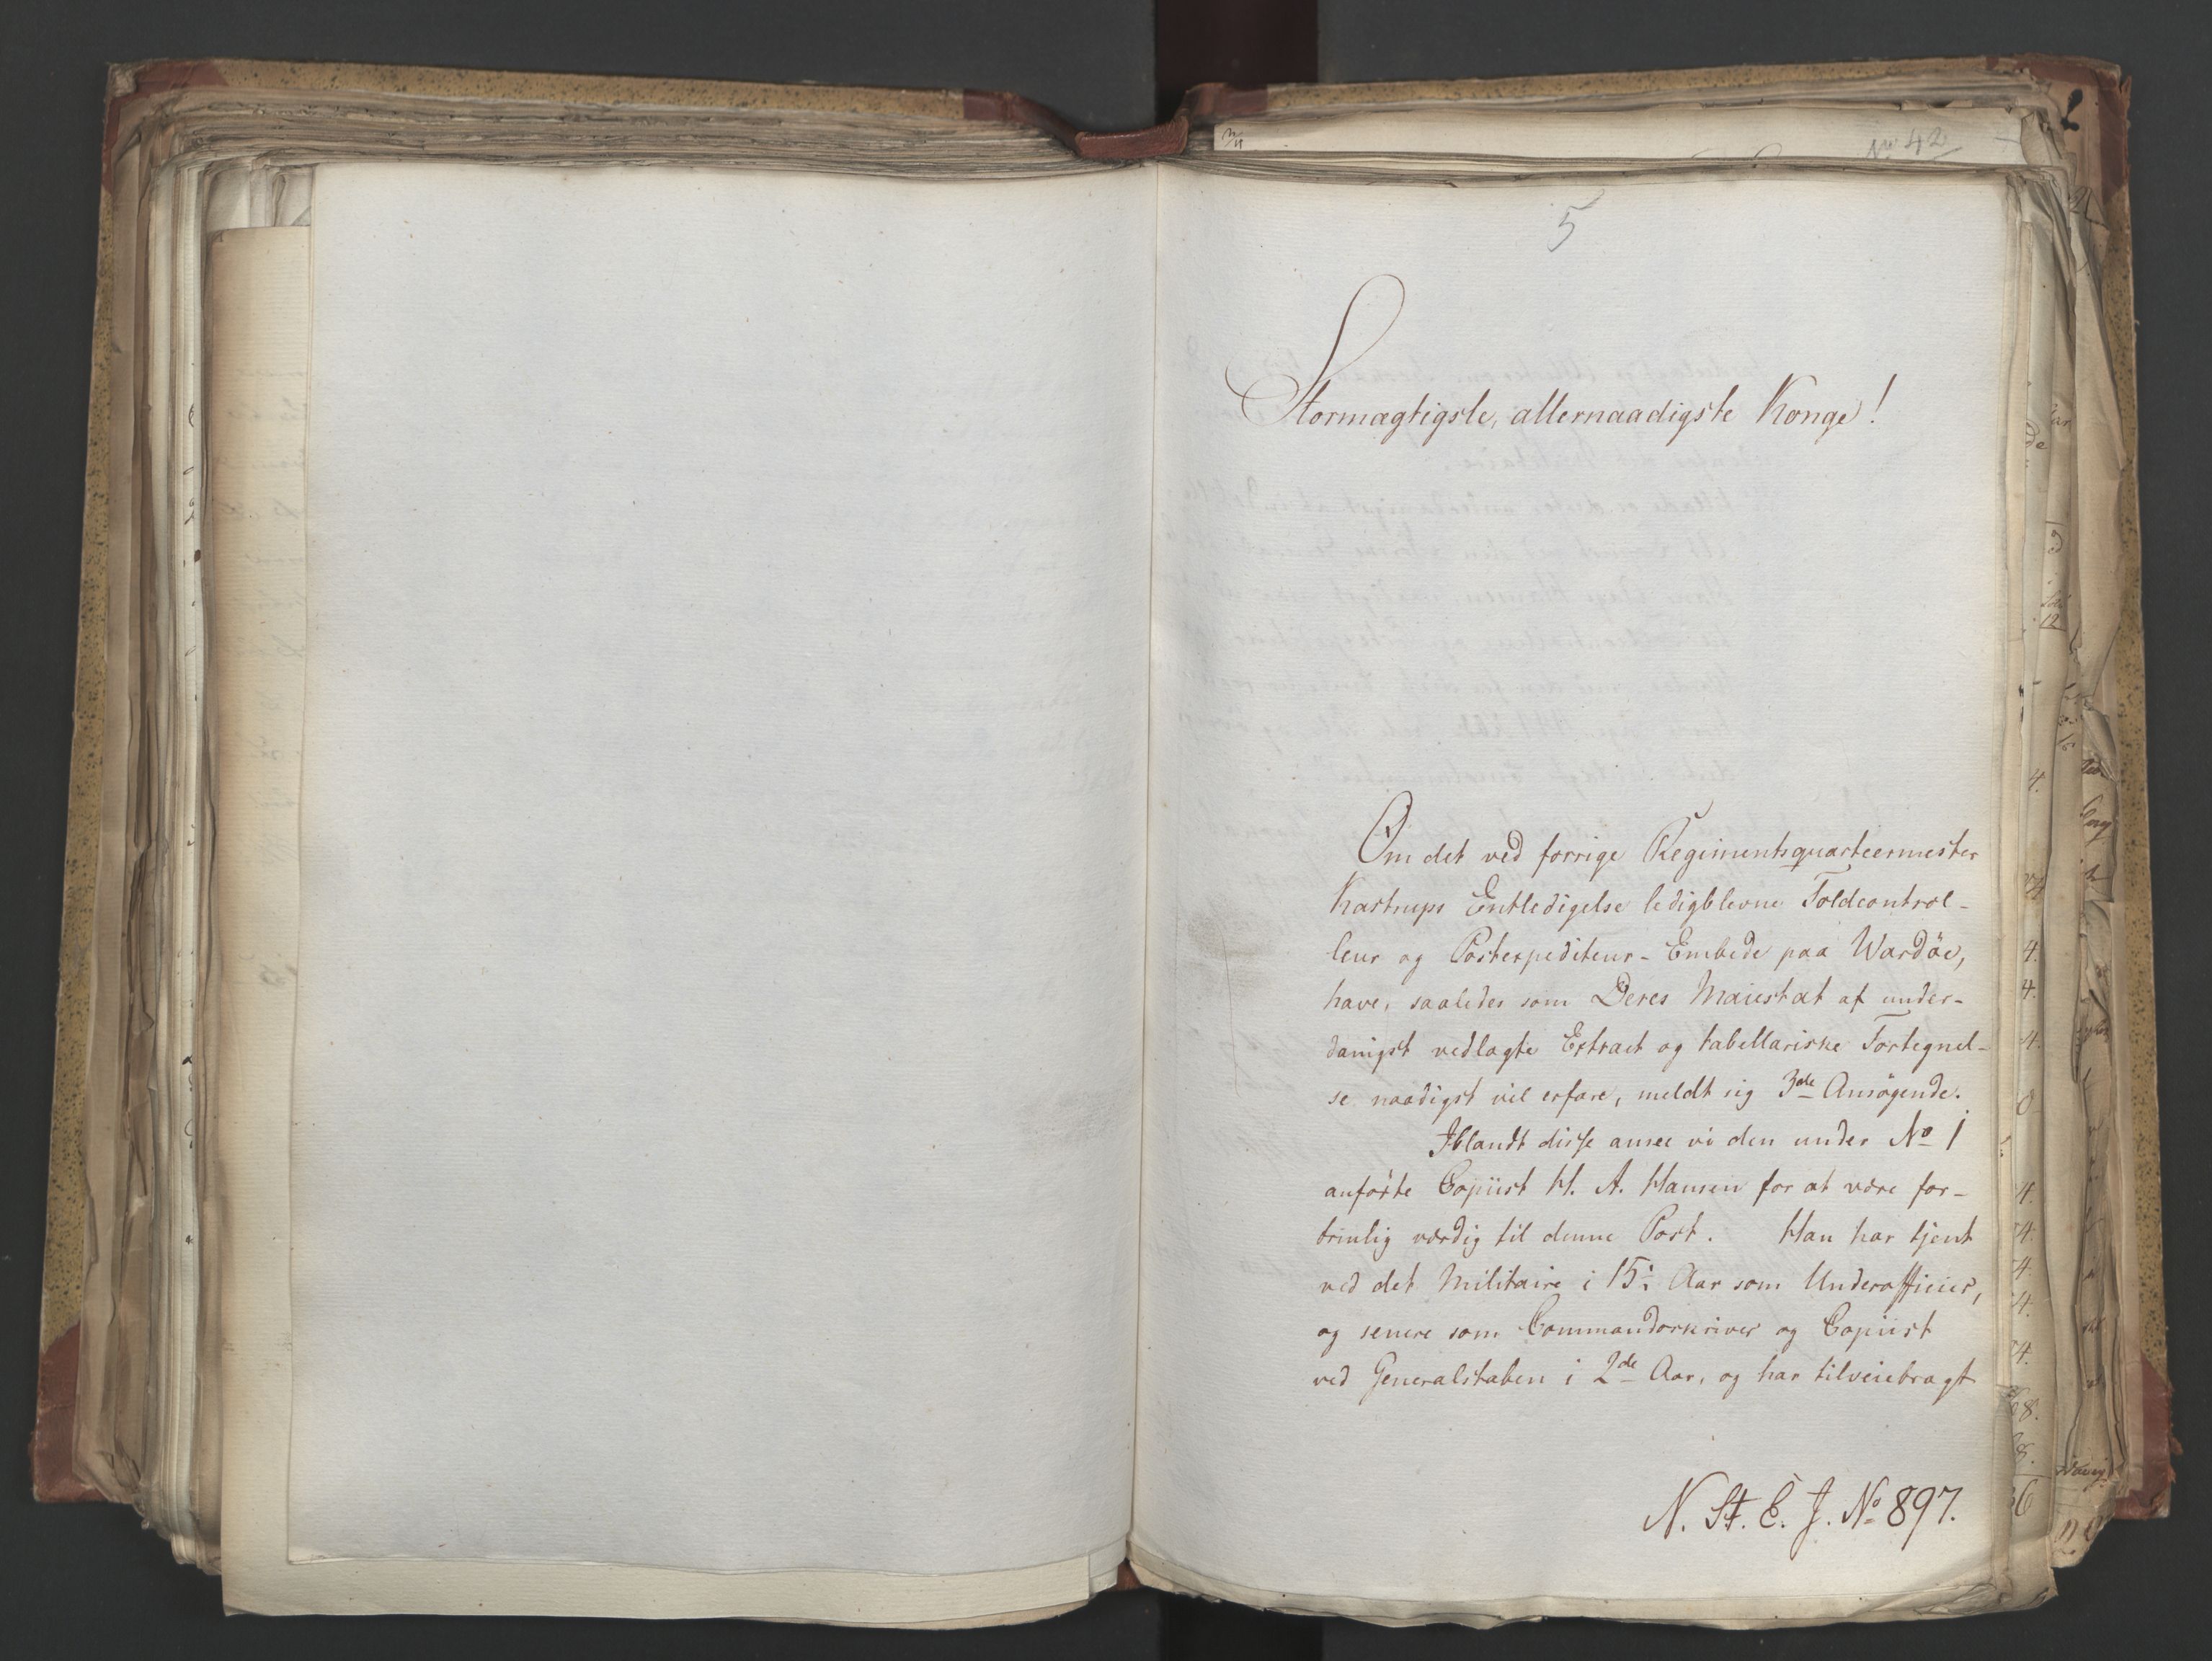 No 42
5
Stormægtigste, allernaadigste Konge!
Om det ved forrige Regimentsquarteermester
Kastrups Entledigelse ledigblevne Toldcontrol-
leur og Postexpediteur-Embede paa Wardöe,
have, saaledes som Deres Maiestæt af under-
danigst vedlagte Extract og tabellariske Fortegnel-
se naadigst vil erfare, meldt sig 3de Ansögende.
Iblandt disse ansee vi den under No 1
anförte Copiist H. A. Hansen for at være for-
trinlig værdig til denne Post. Han har tjent
ved det Militaire i 15 Aar som Underofficier,
og senere som Commandoskriver og Copiist
ved Generalstaben i 2de Aar, og har tilveiebragt
N. St. E. J. No 897.